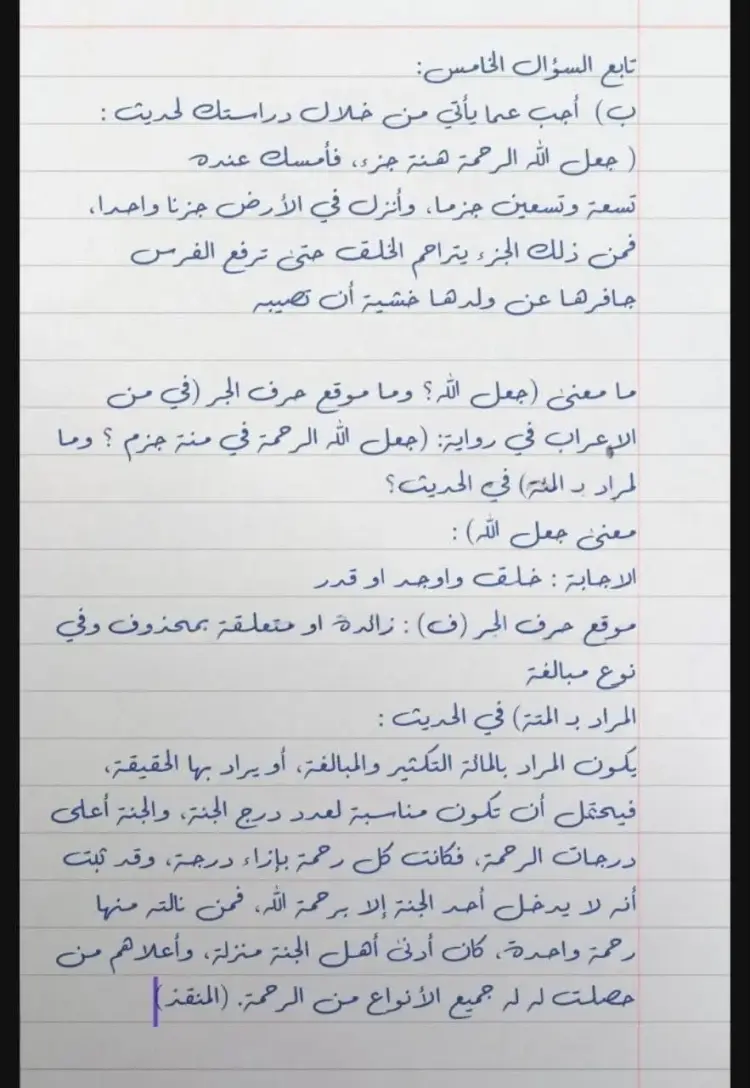 تابع السؤال الخامس:
ب) أجب عما يأتي من خلال دراستك لحديث :
( جعل الله الرحمة هنة جزء، فأمسك عنده
تسعة وتسعين جزما، وأنزل في الأرض جزنا واحدا،
فمن ذلك الجزء يتراحم الخلق حتى ترفع الفرس
حافرها عن ولدها خشية أن تصيبه
ما معنى (جعل الله؟ وما موقع حرف الجر (في من
الإعراب في رواية: (جعل الله الرحمة في منة جزم ؟ وما
لمراد بـ المئة) في الحديث؟
معنى جعل الله) :
الاجابة : خلق واوجد او قدر
موقع حرف الجر (ف) : زائدة او متعلقة بمحذوف وفي
نوع مبالغة
المراد بـ المتة) في الحديث :
يكون المراد بالمائة التكثير والمبالغة، أو يراد بها الحقيقة،
فيحتمل أن تكون مناسبة لعدد درج الجنة، والجنة أعلى
درجات الرحمة، فكانت كل رحمة بإزاء درجة، وقد ثبت
أنه لا يدخل أحد الجنة إلا برحمة الله، فمن نالته منها
رحمة واحدة، كان أدنى أهل الجنة منزلة، وأعلاهم من
حصلت له له جميع الأنواع من الرحمة. (المنقذ)